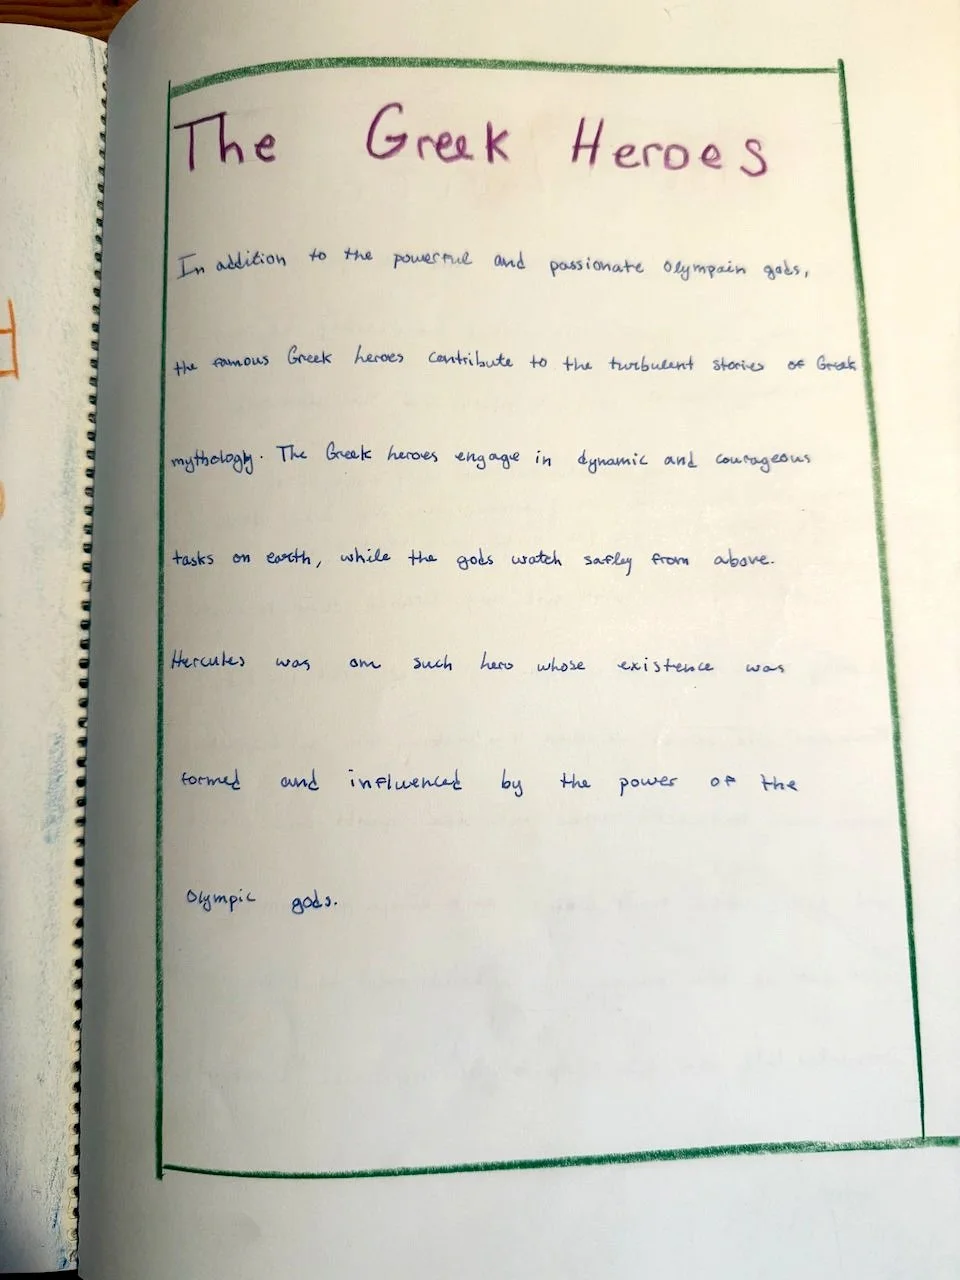 The Greek Heroes
In addition to the powerful and passionate Olympain gods,
the famous Greek heroes contribute to the turbulent stories of Greek
mythology. The Greek heroes engage in dynamic and courageous
tasks on earth, while the gods watch safley from above.
Hercules was om such hero whose existence was
formed and influenced by the power of the
Olympic gods.